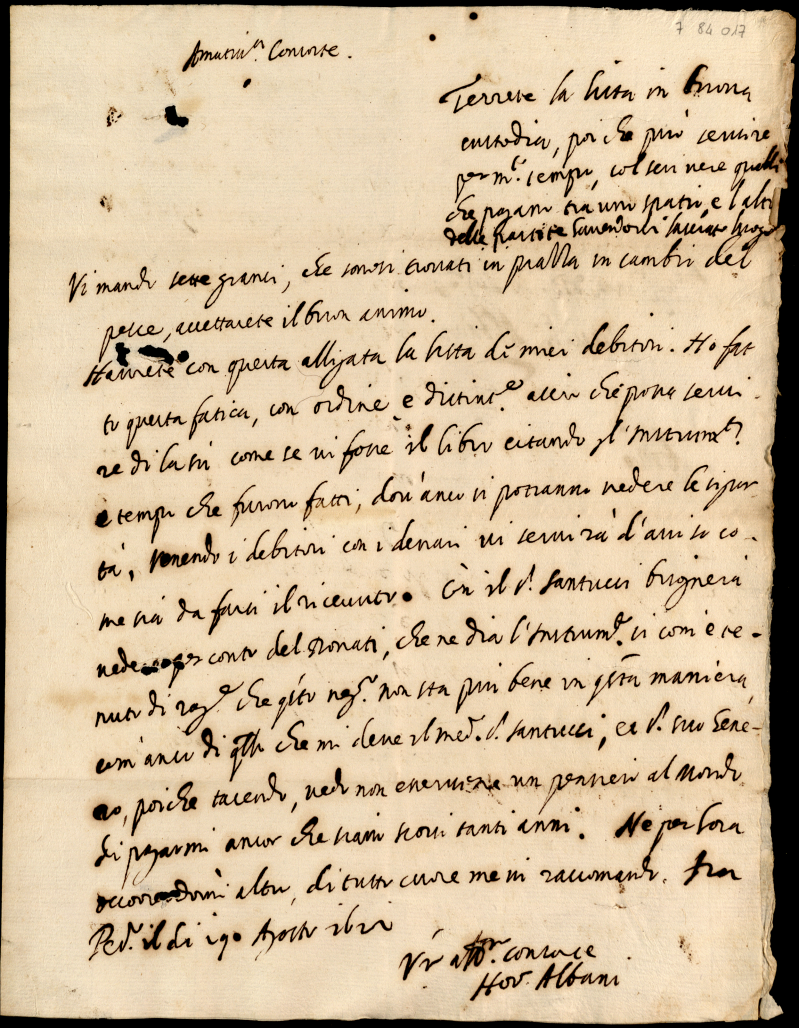 7 84 017
Amatiss.ma Consorte.
Terrete la lista in buona
custodia, poi che può servire
per m.o tempo, col scrivere quelli
che pagano tra uno spatio, e l'altro
delle partite havendovi lasciato luogo
Vi mando sette granci, che sonosi trovati in piazza in cambio del
pesce, accettarete il buon animo.
Haverete con questa alligata la lista di miei debitori. Ho fat
to questa fatica, con ordine e distint.e acciò che possa servi
re di costì come se vi fosse il libro citando gl'Instrum.ti
e tempo che furono fatti, dov'anco si potranno vedere le sigur
tà, venendo i debitori con i denari vi servirà d'aviso co-
me sia da farsi il ricevuto. Con il S. Santucci bisognerà
vedere per conto del Donati, che ne dia l'Instrum.to si com'è te-
nuto di rag.e che q.sto neg.o non sta più bene in q.sta maniera,
com'anco di q.lli che mi deve il med.o S. Santucci, et S. suo Gene-
ro, poiche tacendo, vedo non esservene un pensiero al mondo
di pagarmi ancor che siano scorsi tanti anni. Ne per hora
occorrendomi altro, di tutto cuore me vi raccomando.
Ped.o il di 190 Agosto
Vr aff.mo consorte
Hor. Albani